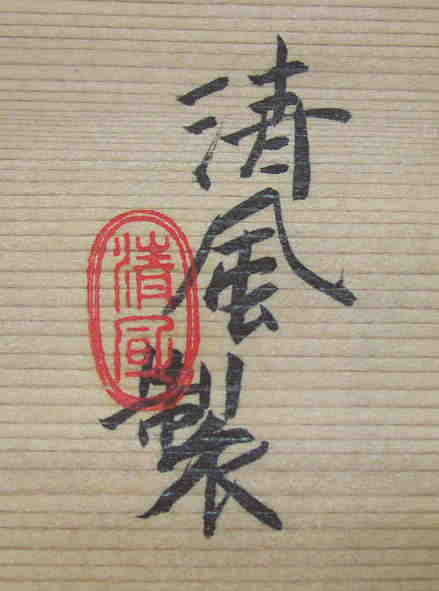 清風製
清風